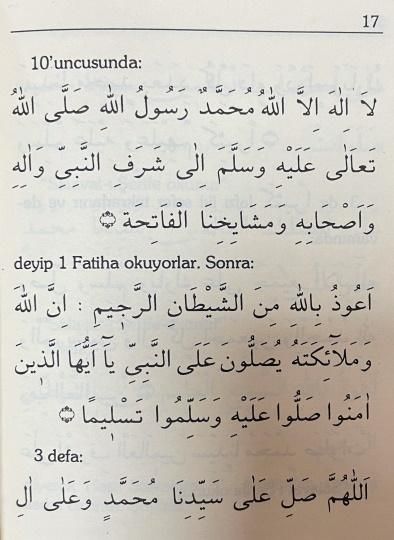 17
10'uncusunda:
لا اِلٰهَ اِلاَّ اللهُ مُحَمَّدٌ رَسُولُ اللهِ صَلَّى اللهُ
تَعَالٰى عَلَيْهِ وَسَلَّمَ اِلٰى شَرَفِ النَّبِىِّ وَاٰلِهِ
وَاَصْحَابِهِ وَمَشَايِخِنَا الْفَاتِحَة
deyip 1 Fatiha okuyorlar. Sonra:
اَعُوذُ بِاللهِ مِنَ الشَّيْطَانِ الرَّجِيمِ : اِنَّ اللهَ
وَمَلَآئِكَتَهُ يُصَلُّونَ عَلَى النَّبِىِّ يَآ اَيُّهَا الَّذِينَ
اٰمَنُوا صَلُّوا عَلَيْهِ وَسَلِّمُوا تَسْلِيمًا
3 defa:
اَللّٰهُمَّ صَلِّ عَلٰى سَيِّدِنَا مُحَمَّدٍ وَعَلٰى اٰلِ